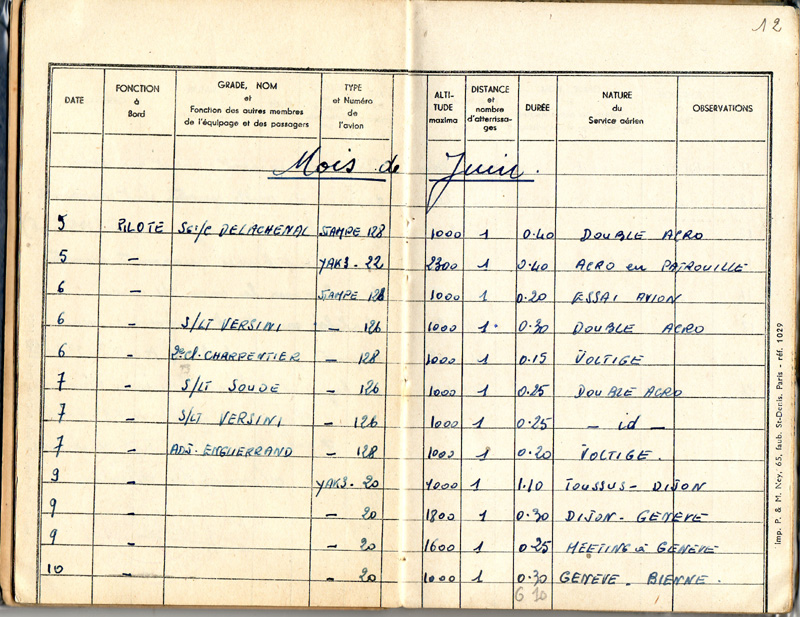 12
DATE FONCTION à Bord GRADE, NOM et Fonction des autres membres de l'équipage et des passagers TYPE et Numéro de l'avion ALTI-TUDE maxima DISTANCE et nombre d'atterrissa-ges DURÉE NATURE du Service aérien OBSERVATIONS
Mois de Juin.
5 PILOTE Sgt/c DELACHENAL STAMPE 128 1000 1 0.40 DOUBLE ACRO
5 - YAK3-22 2300 1 0.40 ACRO en PATROUILLE
6 - STAMPE 128 1000 1 0.20 ESSAI AVION
6 - S/LT VERSINI - 126 1000 1 0.30 DOUBLE ACRO
6 - 2e cl. CHARPENTIER - 128 1000 1 0.15 VOLTIGE
7 - S/LT SOUDE - 126 1000 1 0.25 DOUBLE ACRO
7 - S/LT VERSINI - 126 1000 1 0.25 - id -
7 - ADJ. ENGUERRAND - 128 1000 1 0.20 VOLTIGE.
9 - YAK3-20 4000 1 1.10 TOUSSUS-DIJON
9 - - 20 1800 1 0.30 DIJON-GENEVE
9 - - 20 1600 1 0.25 MEETING à GENEVE
10 - - 20 1000 1 0.30 GENEVE-BIENNE.
6 10
Imp. P. & M. Ney, 65, faub. St-Denis, Paris - réf. 1029